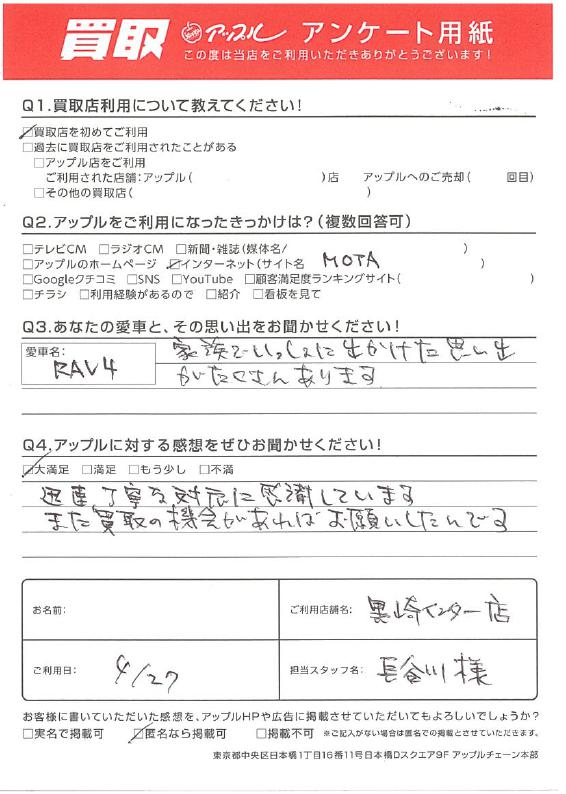 買取 アップル アンケート用紙
この度は当店をご利用いただきありがとうございます!
Q1.買取店利用について教えてください!
☑買取店を初めてご利用
□過去に買取店をご利用されたことがある
□アップル店をご利用
ご利用された店舗:アップル( )店 アップルへのご売却( 回目)
□その他の買取店( )
Q2.アップルをご利用になったきっかけは?(複数回答可)
□テレビCM □ラジオCM □新聞・雑誌(媒体名/ )
□アップルのホームページ ☑インターネット(サイト名 MOTA )
□Googleクチコミ □SNS □YouTube □顧客満足度ランキングサイト( )
□チラシ □利用経験があるので □紹介 □看板を見て
Q3.あなたの愛車と、その思い出をお聞かせください!
愛車名:
RAV4
家族でいっしょに出かけた思い出
がたくさんあります
Q4.アップルに対する感想をぜひお聞かせください!
☑大満足 □満足 □もう少し □不満
迅速丁寧な対応に感謝しています
また買取の機会があればお願いしたいです
お名前:
ご利用店舗名: 黒崎インター店
ご利用日: 4/27
担当スタッフ名: 長谷川様
お客様に書いていただいた感想を、アップルHPや広告に掲載させていただいてもよろしいでしょうか?
□実名で掲載可 ☑匿名なら掲載可 □掲載不可 ※ご記入がない場合は匿名での掲載とさせていただきます。
東京都中央区日本橋1丁目16番11号日本橋Dスクエア9F アップルチェーン本部